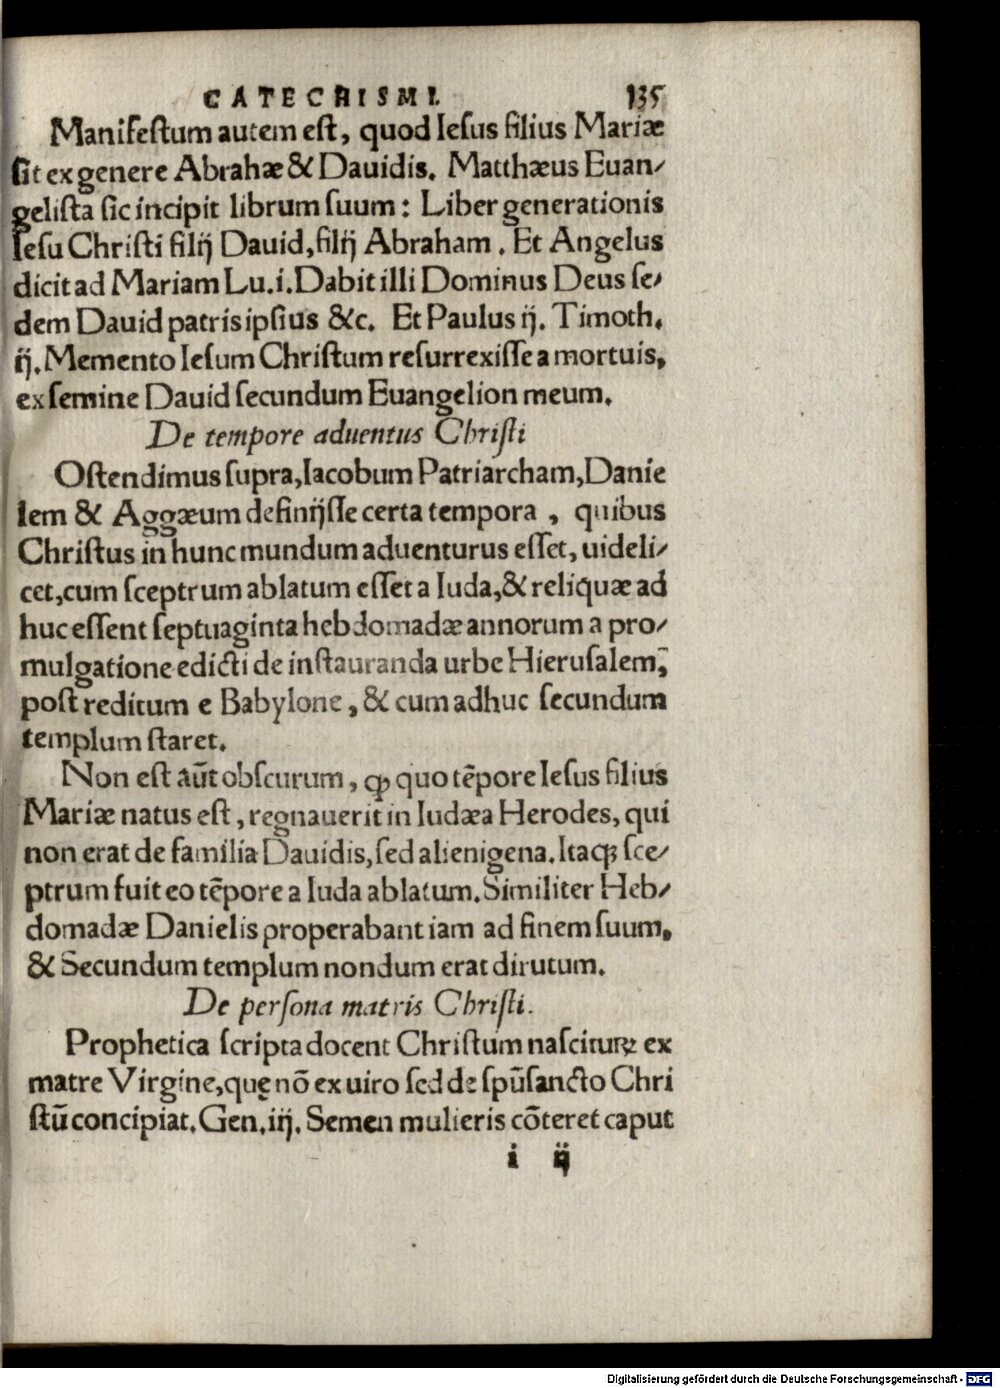 CATECHISMI. 135
Manifestum autem est, quod Iesus filius Mariæ
sit ex genere Abrahæ & Dauidis. Matthæus Euan⸗
gelista sic incipit librum suum: Liber generationis
Iesu Christi filĳ Dauid, filĳ Abraham. Et Angelus
dicit ad Mariam Lu. i. Dabit illi Dominus Deus se⸗
dem Dauid patris ipsius &c. Et Paulus ĳ. Timoth.
ĳ. Memento Iesum Christum resurrexisse a mortuis,
ex semine Dauid secundum Euangelion meum.
De tempore aduentus Christi
Ostendimus supra, Iacobum Patriarcham, Danie
lem & Aggæum definĳsse certa tempora, quibus
Christus in hunc mundum aduenturus esset, uideli⸗
cet, cum sceptrum ablatum esset a Iuda, & reliquæ ad
huc essent septuaginta hebdomadæ annorum a pro⸗
mulgatione edicti de instauranda urbe Hierusalem,
post reditum e Babylone, & cum adhuc secundum
templum staret.
Non est aūt obscurum, ꝙ quo tēpore Iesus filius
Mariæ natus est, regnauerit in Iudæa Herodes, qui
non erat de familia Dauidis, sed alienigena. Itaqꝫ sce⸗
ptrum fuit eo tēpore a Iuda ablatum. Similiter Heb⸗
domadæ Danielis properabant iam ad finem suum,
& Secundum templum nondum erat dirutum.
De persona matris Christi.
Prophetica scripta docent Christum nascituꝝ ex
matre Virgine, quę nō ex uiro sed de spūsancto Chri
stū concipiat. Gen. iĳ. Semen mulieris cōteret caput
i ĳ
Digitalisierung gefördert durch die Deutsche Forschungsgemeinschaft - DFG